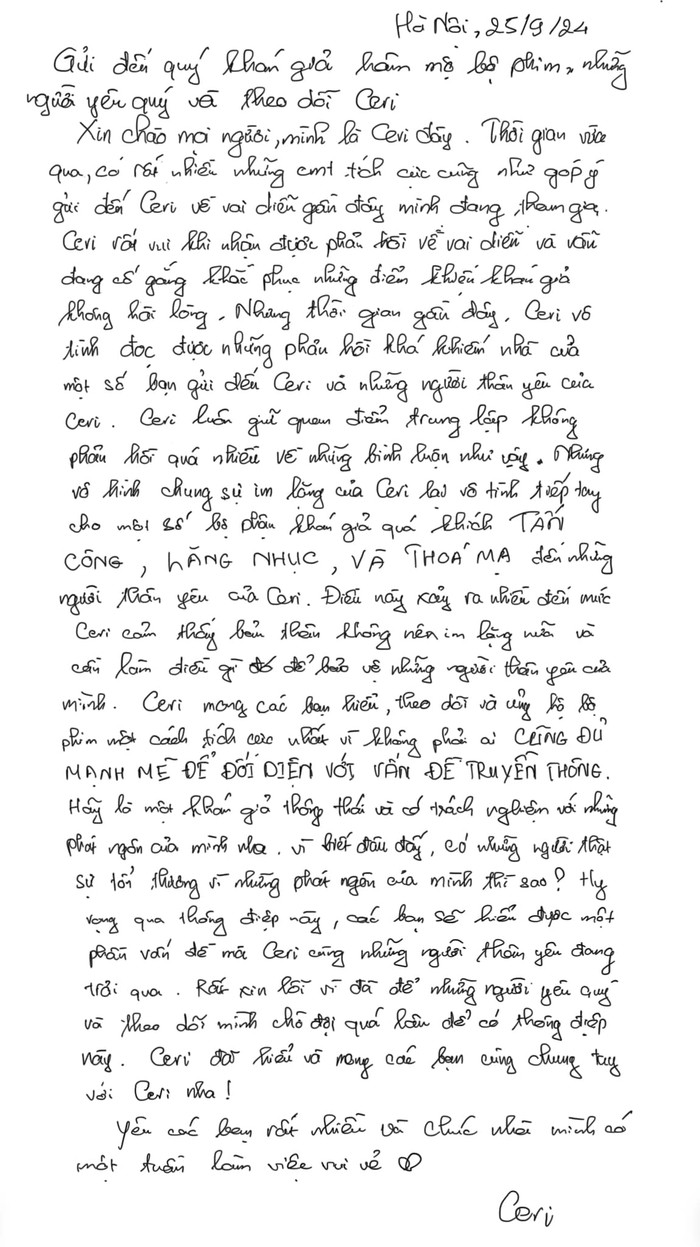 Hà Nội, 25/9/24
Gửi đến quý khán giả hâm mộ bộ phim, những
người yêu quý và theo dõi Ceri
Xin chào mọi người, mình là Ceri đây. Thời gian vừa
qua, có rất nhiều những cmt tích cực cũng như góp ý
gửi đến Ceri về vai diễn gần đây mình đang tham gia.
Ceri rất vui khi nhận được phản hồi về vai diễn và vẫn
đang cố gắng khắc phục những điểm khiến khán giả
không hài lòng. Nhưng thời gian gần đây, Ceri vô
tình đọc được những phản hồi khá khiếm nhã của
một số bạn gửi đến Ceri và những người thân yêu của
Ceri. Ceri luôn giữ quan điểm trung lập không
phản hồi quá nhiều về những bình luận như vậy. Nhưng
vô hình chung sự im lặng của Ceri lại vô tình tiếp tay
cho một số bộ phận khán giả quá khích TẤN
CÔNG, LĂNG NHỤC, VÀ THOÁ MẠ đến những
người thân yêu của Ceri. Điều này xảy ra nhiều đến mức
Ceri cảm thấy bản thân không nên im lặng nữa và
cần làm điều gì đó để bảo vệ những người thân yêu của
mình. Ceri mong các bạn hiểu, theo dõi và ủng hộ bộ
phim một cách tích cực nhất vì không phải ai CŨNG ĐỦ
MẠNH MẼ ĐỂ ĐỐI DIỆN VỚI VẤN ĐỀ TRUYỀN THÔNG.
Hãy là một khán giả thông thái và có trách nghiệm với những
phát ngôn của mình nha. vì biết đâu đấy, có những người thật
sự tổn thương vì những phát ngôn của mình thì sao? Hy
vọng qua thông điệp này, các bạn sẽ hiểu được một
phần vấn đề mà Ceri cùng những người thân yêu đang
trải qua. Rất xin lỗi vì đã để những người yêu quý
và theo dõi mình chờ đợi quá lâu để có thông điệp
này. Ceri đã hiểu và mong các bạn cùng chung tay
với Ceri nha!
Yêu các bạn rất nhiều và chúc nhà mình có
một tuần làm việc vui vẻ ♡
Ceri